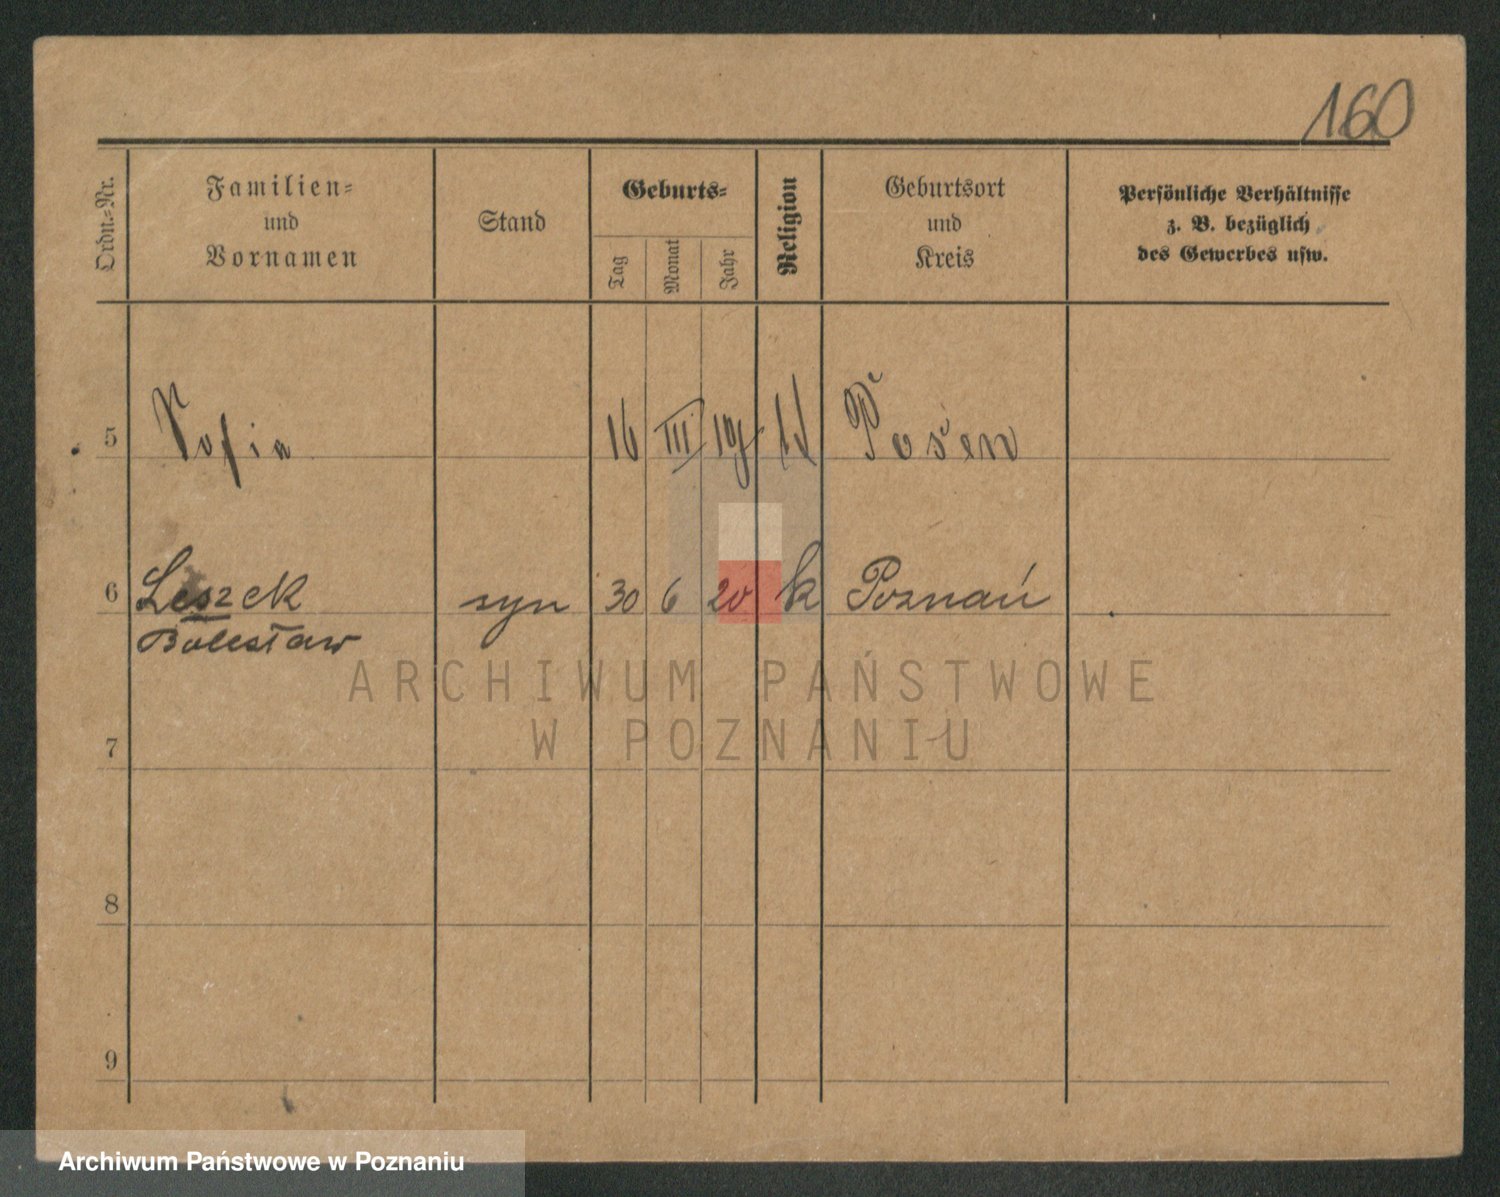 160
Ordn.-Nr.
Familien-
und
Vornamen
Stand
Geburts-
Tag
Monat
Jahr
Religion
Geburtsort
und
Kreis
Persönliche Verhältnisse
z. B. bezüglich
des Gewerbes usw.
5 Sofia 16 III Posen
6 Leszek syn 30 6 20 k Poznań
Bolesław
7
8
9
ARCHIWUM PAŃSTWOWE
W POZNANIU
Archiwum Państwowe w Poznaniu